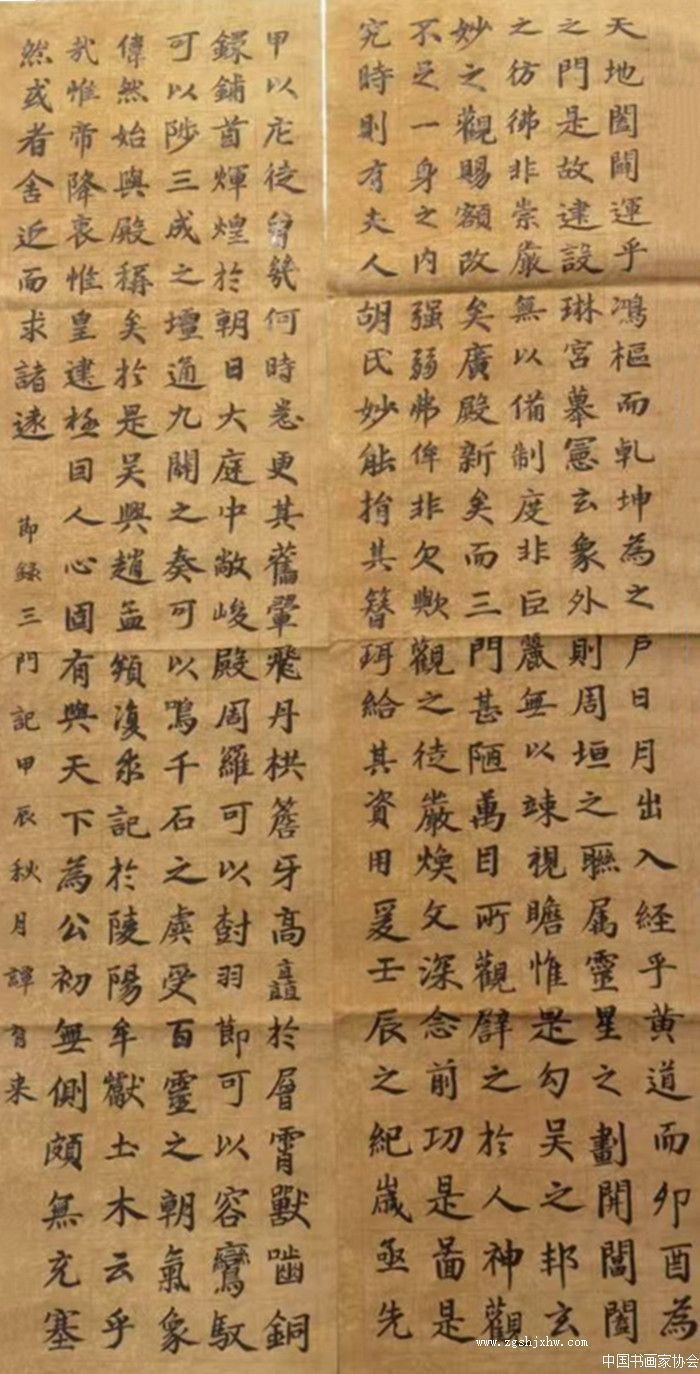 天地闔闢運乎鴻樞而乹坤為之戶日月出入経乎黄道而卯酉為
之門是故建設琳宮摹憲玄象外則周垣之聮属靈星之劃開閶闔
之彷彿非崇嚴無以備制度非巨麗無以竦視瞻惟是勾吴之邦玄
妙之觀賜額改矣廣殿新矣而三門甚陋萬目所觀譬之於人神觀
不足一身之内强弱弗侔非欠歟觀之徒嚴焕文深念前功是啚是
究時則有夫人胡氏妙能捐其簪珥給其資用爰壬辰之紀嵗亟先
甲以庀徒曾幾何時悉更其舊翬飛丹栱簷牙高矗於層霄獸嚙銅
鐶鋪首輝煌於朝日大庭中敞峻殿周羅可以尌羽節可以容鸞馭
可以陟三成之壇通九關之奏可以鳴千石之虡受百靈之朝氣象
偉然始與殿稱矣於是吴興趙孟頫復求記於陵陽牟巘土木云乎
㢤惟帝降衷惟皇建極囙人心固有與天下為公初無側頗無充塞
然或者舍近而求諸逺
節録三門記甲辰秋月譚育来
www.zgshjxhw.com
中国书画家协会